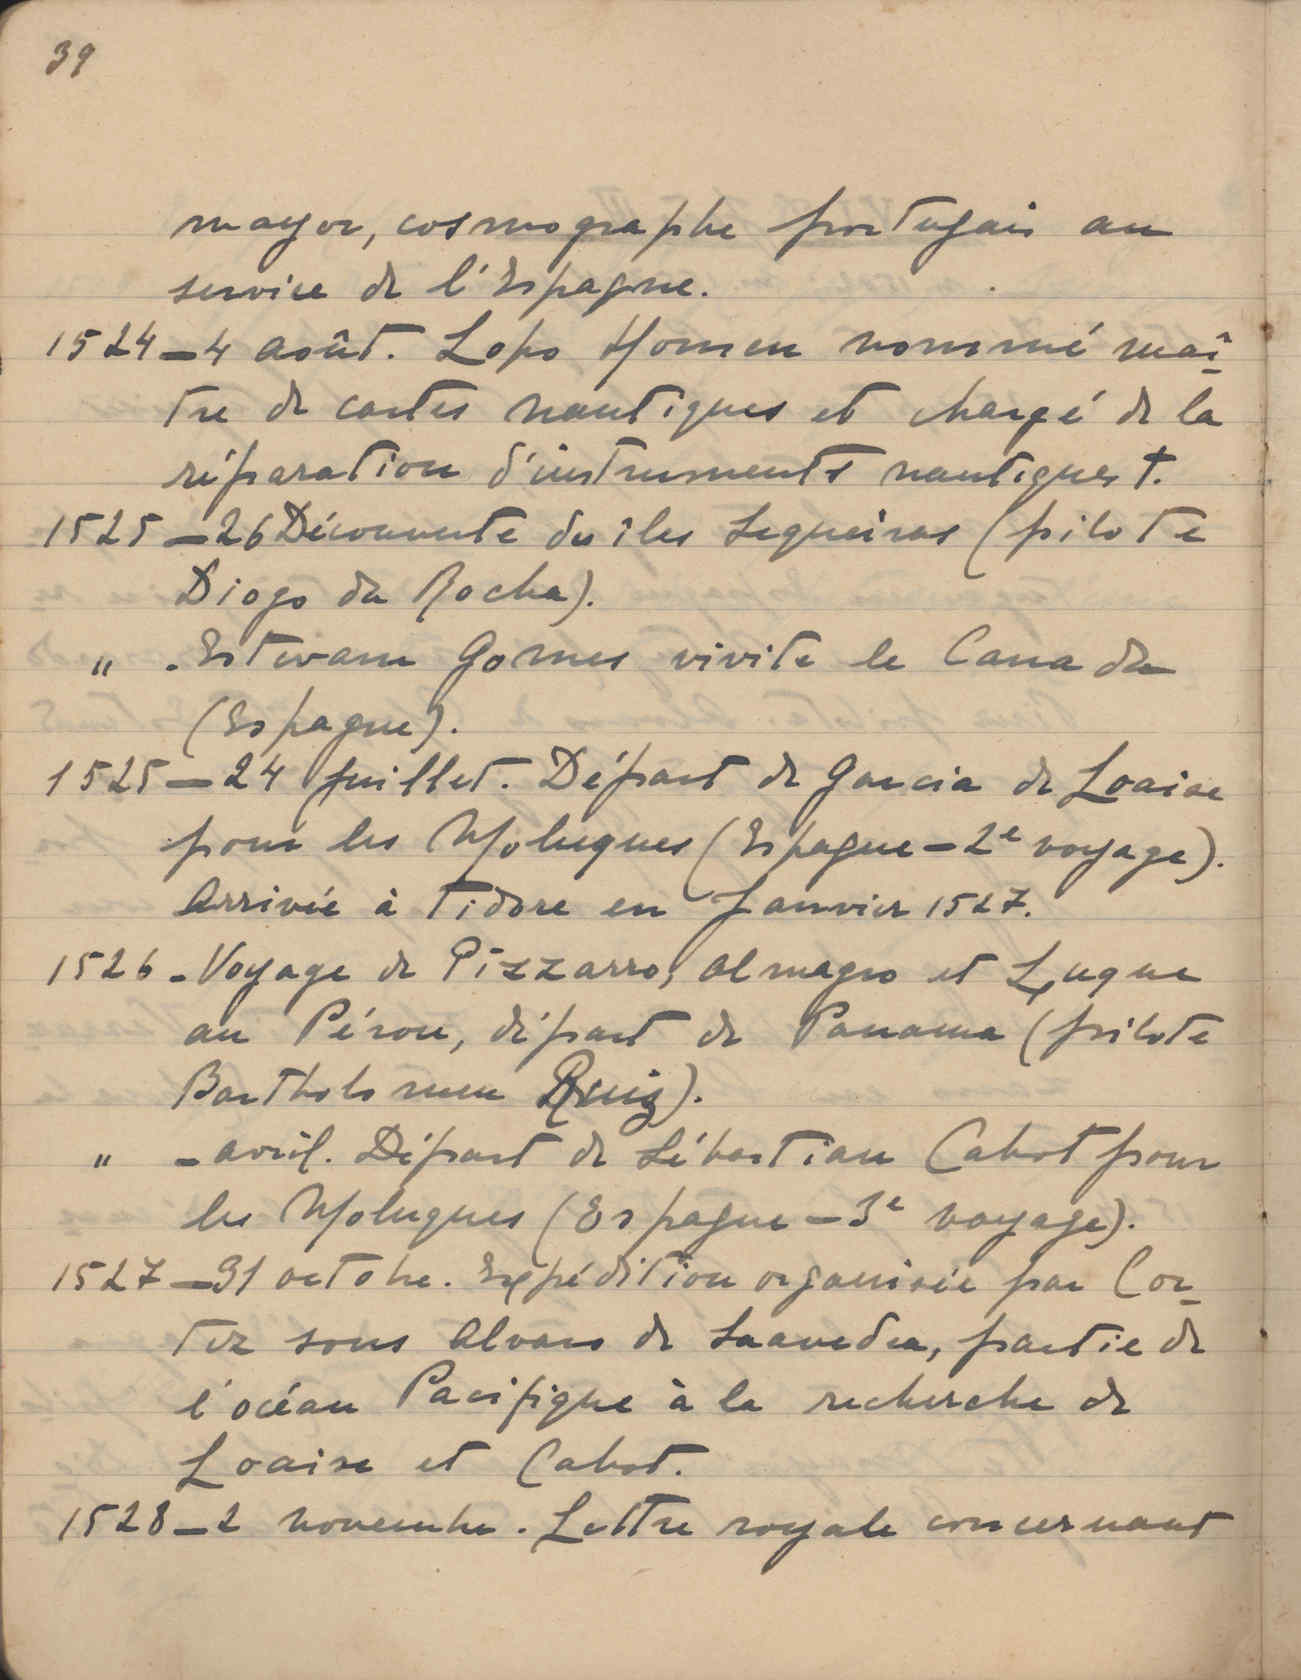 39
mayor, cosmographe portugais au
service de l'Espagne.
1524 – 4 août. Lopo Homem nommé maî-
tre de cartes nautiques et chargé de la
réparation d'instruments nautiques †.
1525 – 26 Découverte des îles Sequeiras (pilote
Diogo da Rocha).
" - Estevam Gomes visite le Canada
(Espagne).
1525 – 24 juillet. Départ de Garcia de Loaise
pour les Moluques (Espagne – 2e voyage).
Arrivée à Tidore en Janvier 1527.
1526 - Voyage de Pizzarro, Almagro et Luque
au Pérou, départ de Panama (pilote
Bartholomeu Ruiz).
" - avril. Départ de Sébastian Cabot pour
les Moluques (Espagne – 3e voyage).
1527 – 31 octobre. Expédition organisée par Cor-
tez sous Alvaro de Saavedra, partie de
l'océan Pacifique à la recherche de
Loaise et Cabot.
1528 – 2 novembre. Lettre royale concernant